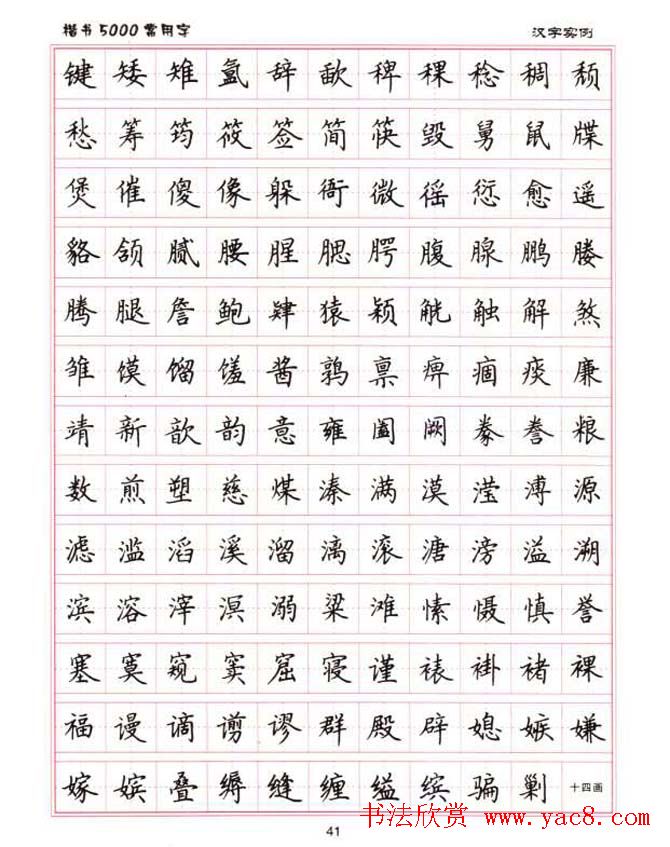 楷书5000常用字 汉字实例
键矮雉氲辞歃稗稞稔稠颓
愁筹筠筱签简筷毁舅鼠牒
煲催傻像躲衙微徭愆愈遥
貉颔腻腰腥腮腭腹腺鹏媵
腾腿詹鲍肆猿颖觥触解煞
雏馍馏馐酱鹑禀痹痼痰廉
靖新歆韵意雍阖阙豢誊粮
数煎塑慈煤溱满漠滢溥源
滤滥滔溪溜漓滚溏滂溢溯
滨溶滓溟溺粱滩愫慑慎誉
塞寞窥窦窟寝谨裱褂褚裸
福谩谪谫谬群殿辟媳嫉嫌
嫁嫔叠缛缝缠缢缤骗剿十四画
书法欣赏 www.yac8.com
41